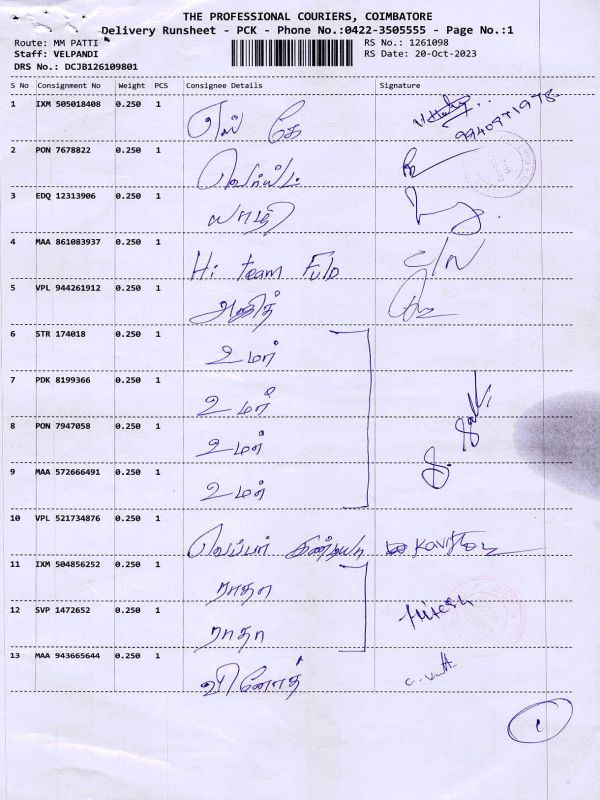 THE PROFESSIONAL COURIERS, COIMBATORE
Delivery Runsheet - PCK - Phone No.:0422-3505555 - Page No.:1
Route: MM PATTI RS No.: 1261098
Staff: VELPANDI RS Date: 20-Oct-2023
DRS No.: DCJB126109801
S No Consignment No Weight PCS Consignee Details Signature
1 IXM 505018408 0.250 1 எஸ் கே
9940971978
2 PON 7678822 0.250 1
3 EDQ 12313906 0.250 1
4 MAA 861083937 0.250 1 Hi team Fulo
5 VPL 944261912 0.250 1 அஜித்
6 STR 174018 0.250 1 உமர்
7 PDK 8199366 0.250 1 உமர்
8 PON 7947058 0.250 1 உமர்
9 MAA 572666491 0.250 1 உமர்
10 VPL 521734876 0.250 1 வெப்பர் இண்டியா
11 IXM 504856252 0.250 1 ராதா
12 SVP 1472652 0.250 1 ராதா Hitesh
13 MAA 943665644 0.250 1 வினோத்
1